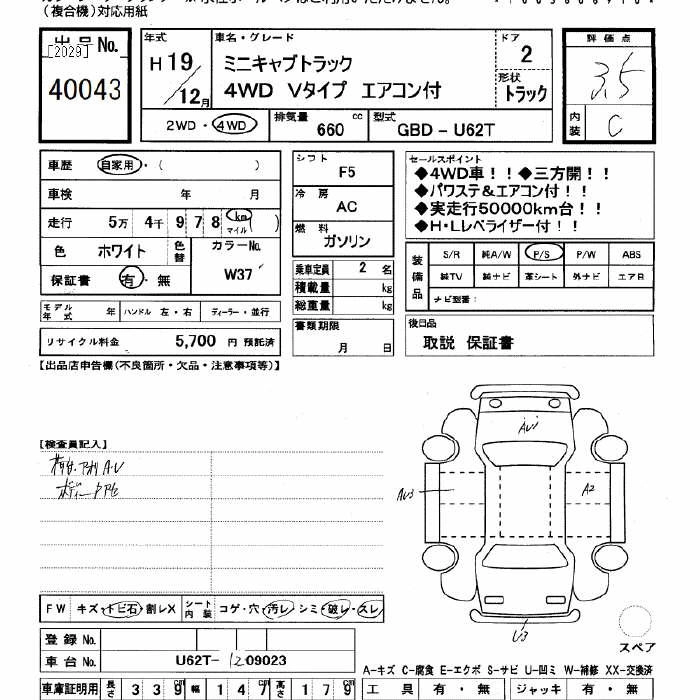 (複合機)対応用紙
出品No.
[2029]
40043
年式
H 19/12月
車名・グレード
ミニキャブトラック
4WD Vタイプ エアコン付
ドア
2
形状
トラック
2WD・4WD
排気量 660 cc
型式 GBD-U62T
評価点
3.5
内装 C
車歴 自家用・( )
車検 年 月
走行 5万 4千 9 7 8 km マイル
色 ホワイト 色替 カラーNo.
W37
保証書 有・無
モデル年式 年 ハンドル 左・右 ディーラー・並行
リサイクル料金 5,700 円 預託済
シフト
F5
冷房
AC
燃料
ガソリン
乗車定員 2 名
積載量 kg
総重量 kg
書類期限
月 日
セールスポイント
◆4WD車!!◆三方開!!
◆パワステ&エアコン付!!
◆実走行50000km台!!
◆H・Lレベライザー付!!
装備品
S/R 純A/W P/S P/W ABS
純TV 純ナビ 革シート 外ナビ エアB
ナビ型番:
後日品
取説 保証書
【出品店申告欄(不良箇所・欠品・注意事項等)】
【検査員記入】
A・U
ボディー
AU1
AU3
A2
U3
スペア
FW キズ・トビ石・割レX シート内装 コゲ・穴・汚レ・シミ・破レ・スレ
登録No.
車台No. U62T-1209023
車庫証明用 長さ 3 3 9 cm 幅 1 4 7 cm 高さ 1 7 9 cm
A-キズ C-腐食 E-エクボ S-サビ U-凹ミ W-補修 XX-交換済
工具 有・無 ジャッキ 有・無